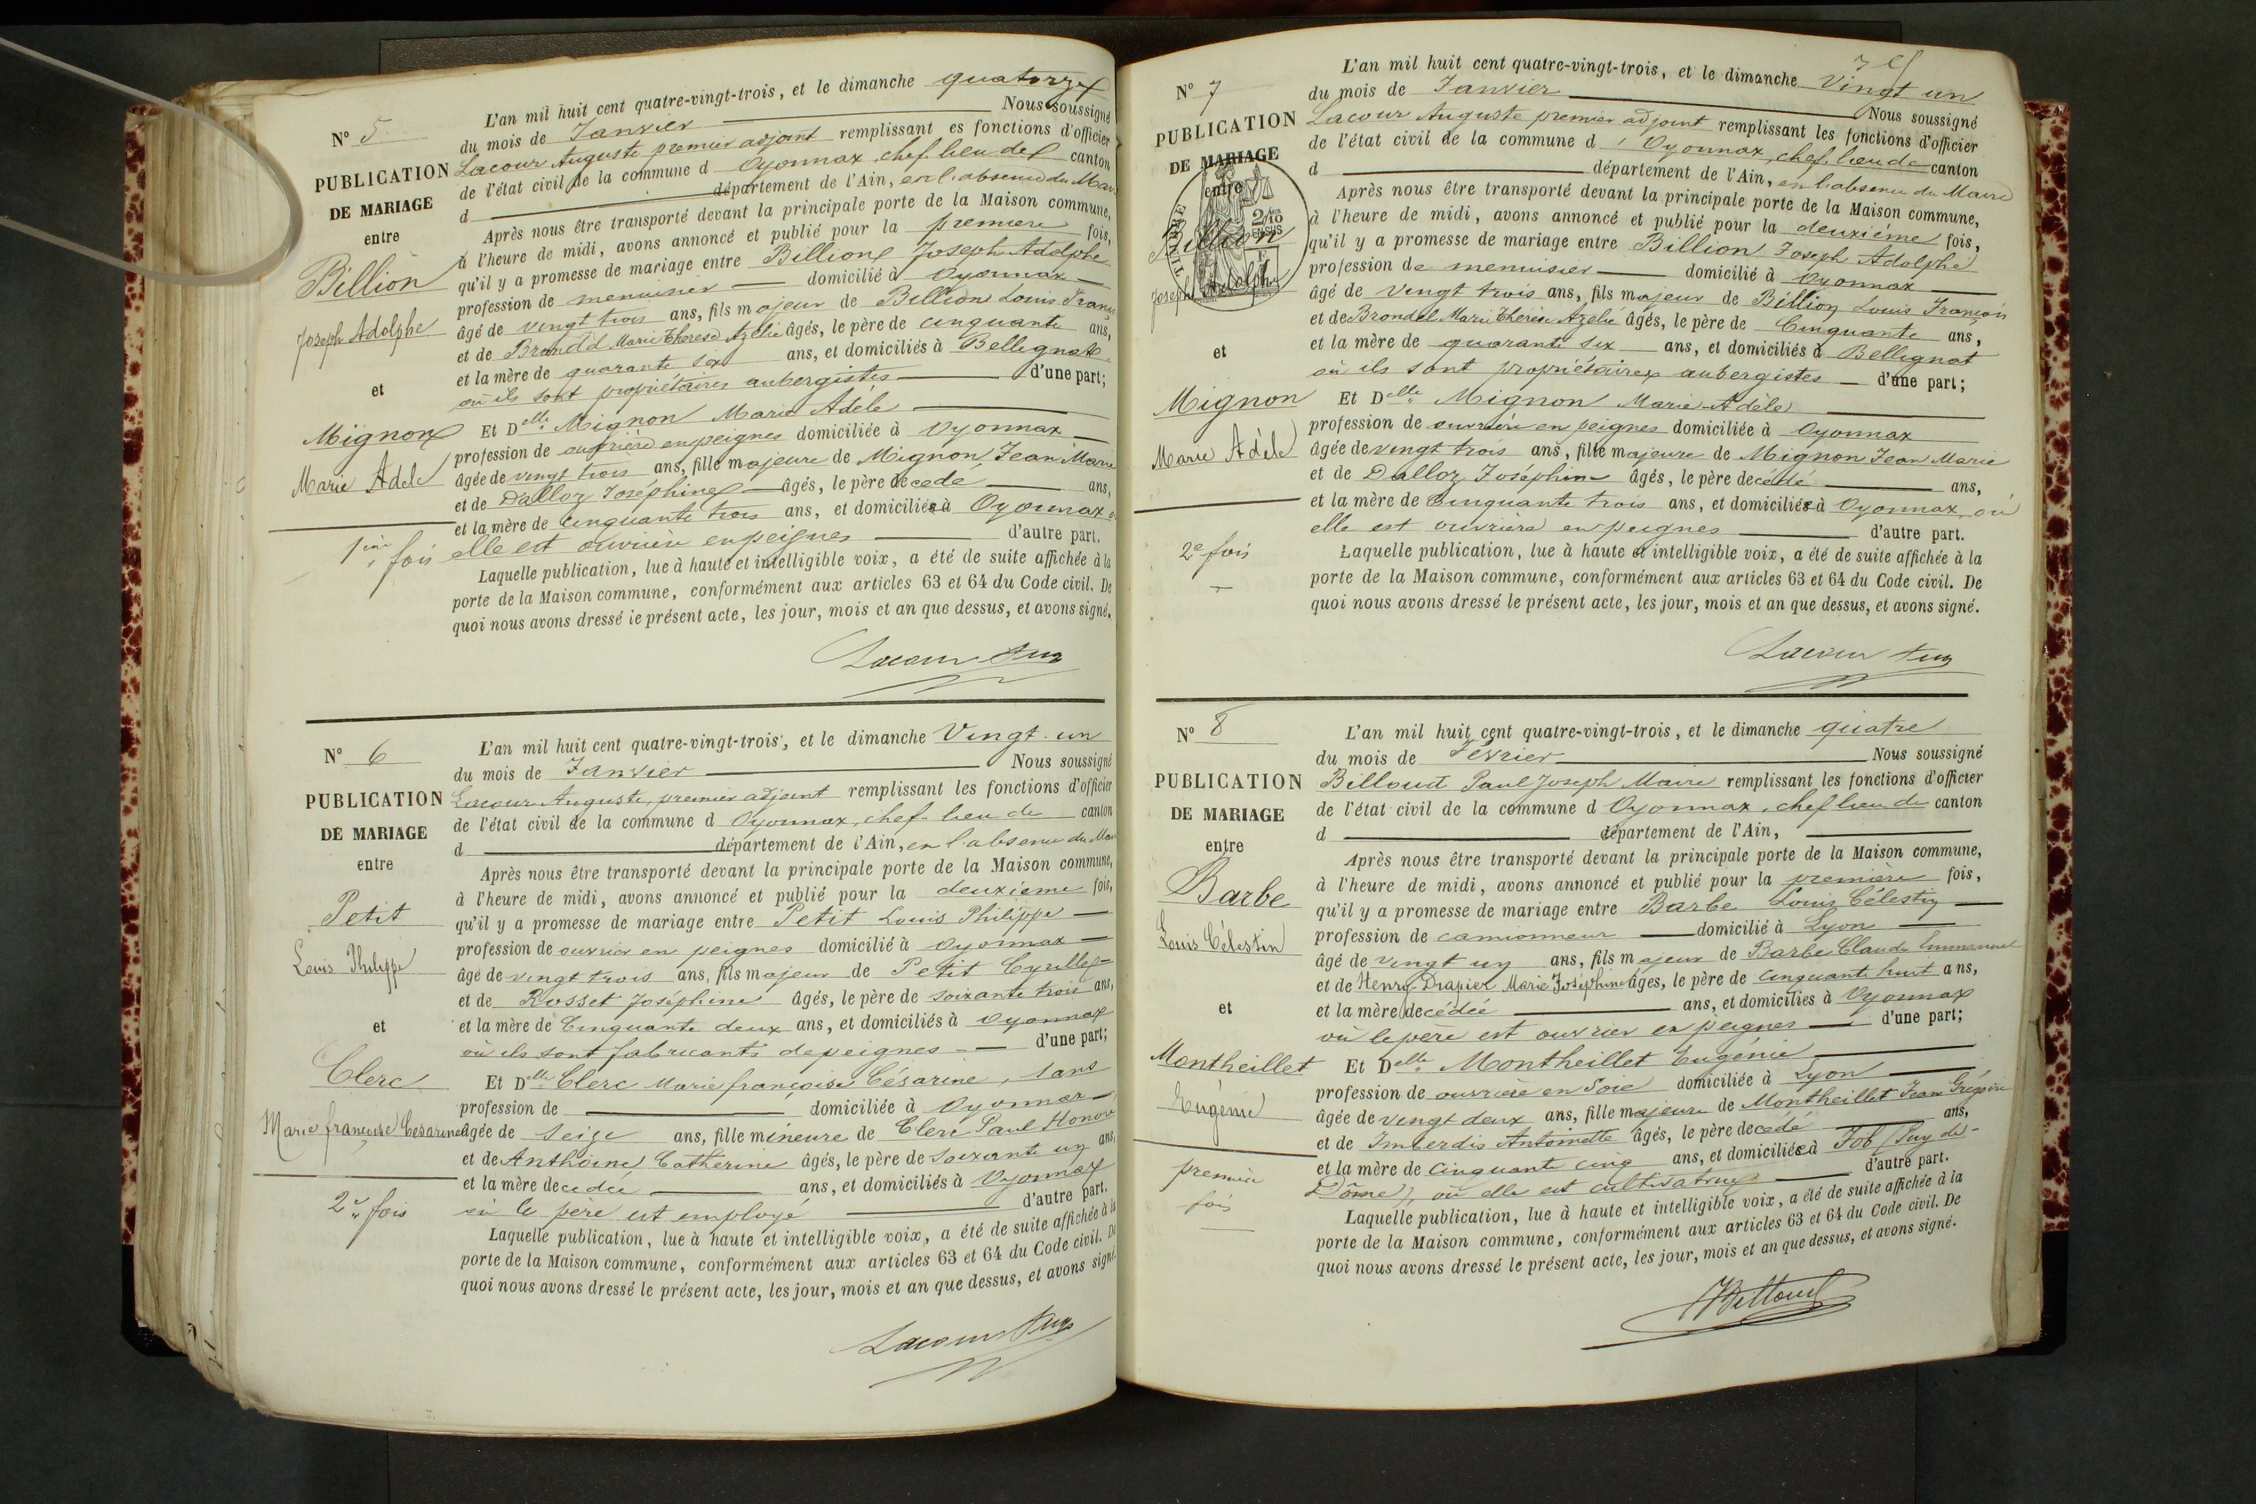 N° 5
PUBLICATION
DE MARIAGE
entre
Billion
Joseph Adolphe
et
Mignon
Marie Adèle
1ère fois
L'an mil huit cent quatre-vingt-trois, et le dimanche quatorze
du mois de Janvier Nous soussigné
Lacour Auguste premier adjoint remplissant es fonctions d'officier
de l'état civil de la commune d Oyonnax, chef lieu de canton
d département de l'Ain, en l'absence du Maire
Après nous être transporté devant la principale porte de la Maison commune,
à l'heure de midi, avons annoncé et publié pour la première fois,
qu'il y a promesse de mariage entre Billion Joseph Adolphe
profession de menuisier domicilié à Oyonnax
âgé de vingt trois ans, fils majeur de Billion Louis Franç
et de Brondel Marie Thérèse Azélie âgés, le père de cinquante ans,
et la mère de quarante six ans, et domiciliés à Bellignat
où ils sont propriétaires aubergistes d'une part;
Et Delle Mignon Marie Adèle
profession de ouvrière en peignes domiciliée à Oyonnax
âgée de vingt trois ans, fille majeure de Mignon Jean Marie
et de Dalloz Joséphine âgés, le père décédé ans,
et la mère de cinquante trois ans, et domiciliée à Oyonnax où
elle est ouvrière en peignes d'autre part.
Laquelle publication, lue à haute et intelligible voix, a été de suite affichée à la
porte de la Maison commune, conformément aux articles 63 et 64 du Code civil. De
quoi nous avons dressé le présent acte, les jour, mois et an que dessus, et avons signé.
Lacour Aug
N° 6
PUBLICATION
DE MARIAGE
entre
Petit
Louis Philippe
et
Clerc
Marie françoise Césarine
2e fois
L'an mil huit cent quatre-vingt-trois, et le dimanche Vingt un
du mois de Janvier Nous soussigné
Lacour Auguste, premier adjoint remplissant les fonctions d'officier
de l'état civil de la commune d Oyonnax, chef lieu de canton
d département de l'Ain, en l'absence du Mai
Après nous être transporté devant la principale porte de la Maison commune,
à l'heure de midi, avons annoncé et publié pour la deuxième fois,
qu'il y a promesse de mariage entre Petit Louis Philippe
profession de ouvrier en peignes domicilié à Oyonnax
âgé de vingt trois ans, fils majeur de Petit Cyrille
et de Rosset Joséphine âgés, le père de soixante trois ans,
et la mère de Cinquante deux ans, et domiciliés à Oyonnax
où ils sont fabricants de peignes d'une part;
Et Delle Clerc Marie françoise Césarine, sans
profession de domiciliée à Oyonnax
âgée de seize ans, fille mineure de Clerc Paul Honoré
et de Anthoine Catherine âgés, le père de soixante un ans,
et la mère décédée ans, et domiciliés à Oyonnax
où le père est employé d'autre part.
Laquelle publication, lue à haute et intelligible voix, a été de suite affichée à la
porte de la Maison commune, conformément aux articles 63 et 64 du Code civil. De
quoi nous avons dressé le présent acte, les jour, mois et an que dessus, et avons signé.
Lacour Aug
N° 7
PUBLICATION
DE MARIAGE
entre
Billion
Joseph Adolphe
et
Mignon
Marie Adèle
2e fois
L'an mil huit cent quatre-vingt-trois, et le dimanche Vingt un
du mois de Janvier Nous soussigné
Lacour Auguste premier adjoint remplissant les fonctions d'officier
de l'état civil de la commune d'Oyonnax, chef lieu de canton
d département de l'Ain, en l'absence du Maire
Après nous être transporté devant la principale porte de la Maison commune,
à l'heure de midi, avons annoncé et publié pour la deuxième fois,
qu'il y a promesse de mariage entre Billion Joseph Adolphe
profession de menuisier domicilié à Oyonnax
âgé de vingt trois ans, fils majeur de Billion Louis François
et de Brondel Marie Thérèse Azélie âgés, le père de Cinquante ans,
et la mère de quarante six ans, et domiciliés à Bellignat
où ils sont propriétaires aubergistes d'une part;
Et Delle Mignon Marie Adèle
profession de ouvrière en peignes domiciliée à Oyonnax
âgée de vingt trois ans, fille majeure de Mignon Jean Marie
et de Dalloz Joséphine âgés, le père décédé ans,
et la mère de Cinquante trois ans, et domiciliée à Oyonnax, où
elle est ouvrière en peignes d'autre part.
Laquelle publication, lue à haute et intelligible voix, a été de suite affichée à la
porte de la Maison commune, conformément aux articles 63 et 64 du Code civil. De
quoi nous avons dressé le présent acte, les jour, mois et an que dessus, et avons signé.
Lacour Aug
N° 8
PUBLICATION
DE MARIAGE
entre
Barbe
Louis Célestin
et
Montheillet
Eugénie
première
fois
L'an mil huit cent quatre-vingt-trois, et le dimanche quatre
du mois de Février Nous soussigné
Billoud Paul Joseph Maire remplissant les fonctions d'officier
de l'état civil de la commune d Oyonnax, chef lieu de canton
d département de l'Ain,
Après nous être transporté devant la principale porte de la Maison commune,
à l'heure de midi, avons annoncé et publié pour la première fois,
qu'il y a promesse de mariage entre Barbe Louis Célestin
profession de camionneur domicilié à Lyon
âgé de vingt un ans, fils majeur de Barbe Claude Emmanuel
et de Henry Drapier Marie Joséphine âgés, le père de cinquante huit ans,
et la mère décédée ans, et domiciliés à Oyonnax
où le père est ouvrier en peignes d'une part;
Et Delle Montheillet Eugénie
profession de ouvrière en Soie domiciliée à Lyon
âgée de vingt deux ans, fille majeure de Montheillet Jean Grégoire
et de Imberdis Antoinette âgés, le père décédé ans,
et la mère de cinquante cinq ans, et domiciliée à Job (Puy de
Dôme), où elle est cultivatrice d'autre part.
Laquelle publication, lue à haute et intelligible voix, a été de suite affichée à la
porte de la Maison commune, conformément aux articles 63 et 64 du Code civil. De
quoi nous avons dressé le présent acte, les jour, mois et an que dessus, et avons signé.
Billoud